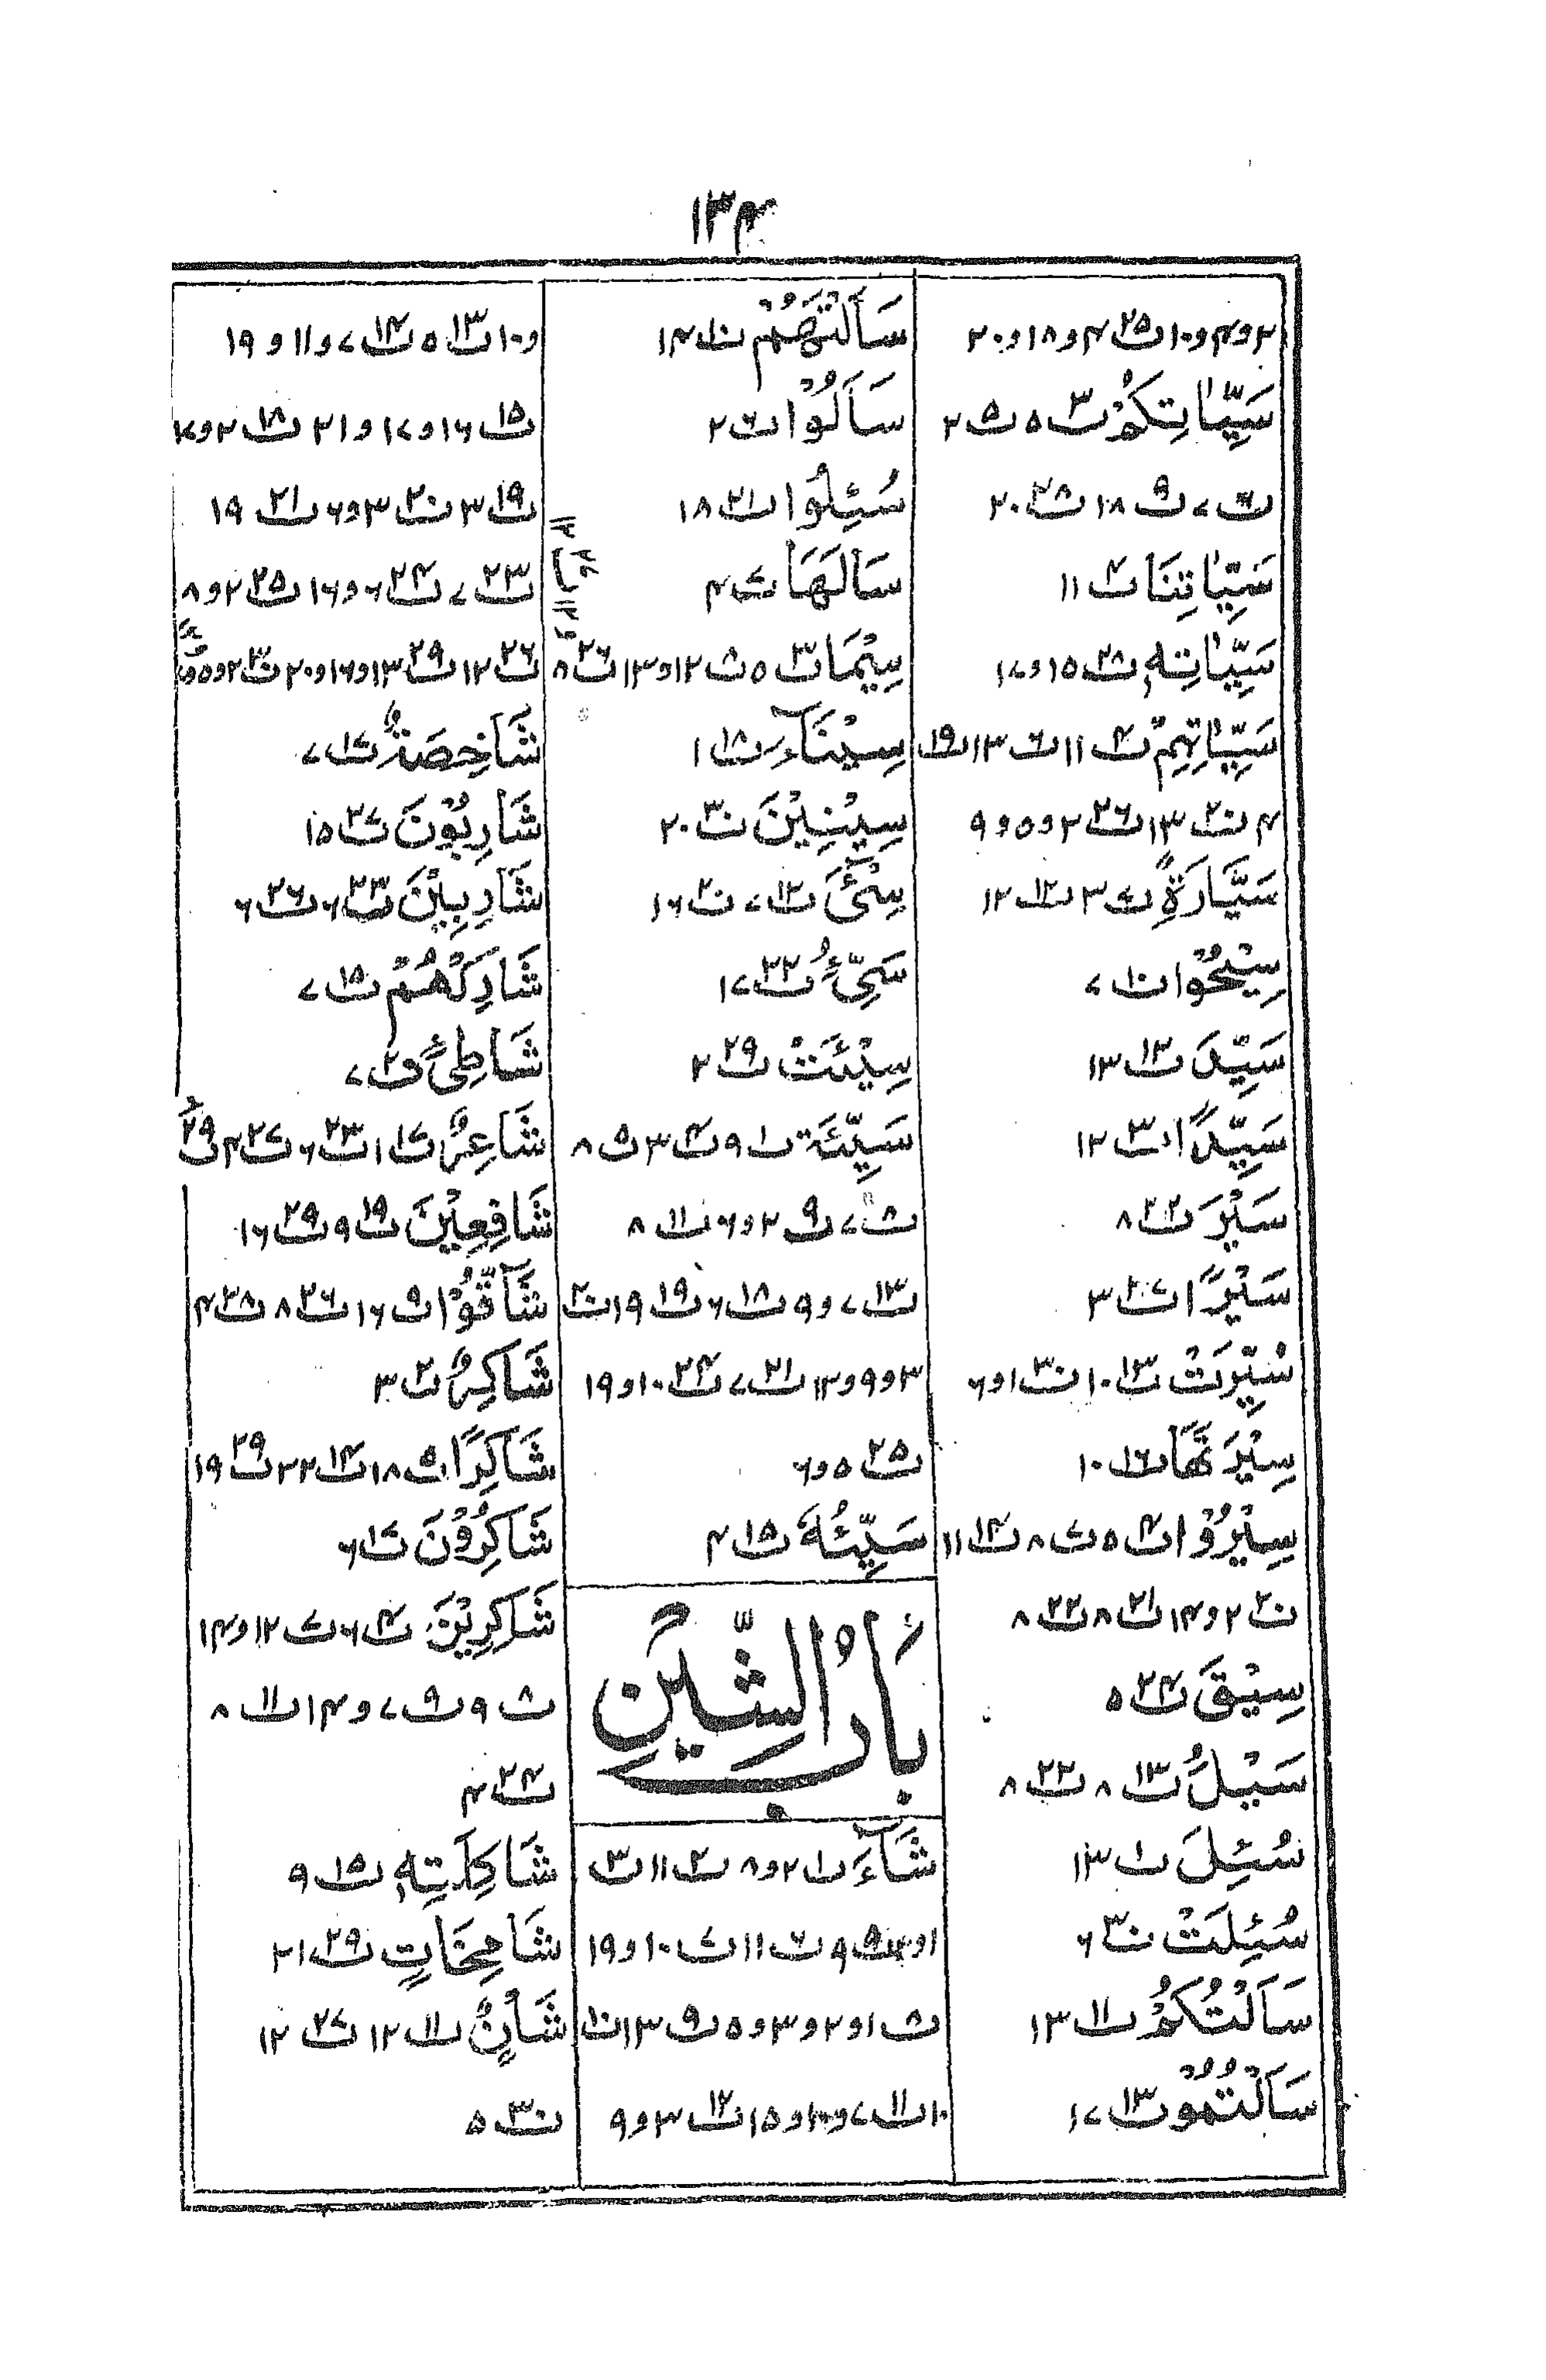 ۱۳۴
۲و۴و۱۰ت۲۵ ۴و۱۸و۲۰
سَيِّاٰتِكُمْ ت۳ ۵ ت۵ ۲
ت۶ ۷ ت۹ ۱۸ ت۲۸ ۲۰
سَيِّاٰتِنَا ت۴ ۱۱
سَيِّاٰتِهٖ ت۲۸ ۱۵و۱۷
سَيِّاٰتِهِمْ ت۴ ۱۱ ت۶ ۱۳ ت۱۹
۴ ت۲۰ ۱۳ ت۲۶ ۲و۵و۹
سَيَّارَةٍ ت۷ ۳ ت۱۲ ۱۲
سِيْحُوْا ت۱۰ ۷
سَيِّدَ ت۱۳ ۱۳
سَيِّدًا ت۳ ۱۲
سَيْرَ ت۲۲ ۸
سَيْرًا ت۲۷ ۳
سُيِّرَتْ ت۱۳ ۱۰ ت۳۰ ۱و۶
سِيْرَتَهَا ت۱۶ ۱۰
سِيْرُوْا ت۴ ۵ ت۷ ۸ ت۱۴ ۱۱
ت۲۰ ۲و۱۴ ت۲۱ ۸ ت۲۲ ۸
سِيْقَ ت۲۴ ۵
سَيْلُ ت۱۳ ۸ ت۲۲ ۸
سُئِلَ ت۱ ۱۳
سُئِلَتْ ت۳۰ ۶
سَاَلْتُكُمْ ت۱۱ ۱۳
سَاَلْتُمُوْ ت۱۳ ۱۷
سَاَلْتَهُمْ ت۱۰ ۱۴
سَاَلُوْا ت۶ ۲
سُئِلُوْا ت۲۱ ۱۸
سَاَلَهَا ت۷ ۴
سِيْمَا ت۳ ۵ ت۸ ۱۲و۱۳ ت۲۶ ۸
سِيْنَآءَ ت۱۸ ۱
سِيْنِيْنَ ت۳۰ ۲۰
سِیْٓئَ ت۱۲ ۷ ت۲۰ ۱۶
سَيِّیُٔ ت۲۲ ۱۷
سِيْئَتْ ت۲۹ ۲
سَيِّئَة ت۱ ۹ ت۴ ۳ ت۵ ۸
ت۸ ۷ ت۹ ۲و۶ ت۱۱ ۸
ت۱۳ ۷و۹ ت۱۸ ۶ ت۱۹ ۱۹ ت۲۰
۳و۹و۱۲ ت۲۱ ۷ ت۲۴ ۱۰و۱۹
ت۲۵ ۵و۶
سَيِّئُهٗ ت۱۵ ۴
بَابُ الشِّيْنِ
شَآءَ ت۱ ۲و۸ ت۲ ۱۱ ت۳
ت۶ ۱۱ ت۷ ۱۰و۱۹
ت۸ ۱و۲و۳و۵ ت۹ ۱۳ ت۱۰
۱۰ ت۱۱ ۷و۱۰و۱۵ ت۱۲ ۳و۹
و۱۰ ت۱۳ ۵ ت۱۴ ۷و۱۱و۱۹
ت۱۵ ۱۶و۱۷و۲۱ ت۱۸ ۲و۷
ت۱۹ ۳ ت۲۰ ۳و۶ ت۲۱ ۱۹
ت۲۳ ۷ ت۲۴ ۶و۱۶ ت۲۵ ۲و۸
ت۲۶ ۱۲ ت۲۹ ۱۳و۱۶و۲۰ ت۳۰ ۲و۵و
شَاخِصَةٌ ت۱۷ ۷
شَارِبُوْنَ ت۲۷ ۱۵
شَارِبِيْنَ ت۲۳ ۶ ت۲۶ ۶
شَارِكْهُمْ ت۱۵ ۷
شَاطِئِ ت۲۰ ۷
شَاعِرٌ ت۱۷ ۱ ت۲۳ ۶ ت۲۷ ۴ ت۲۹
شَافِعِيْنَ ت۱۹ ۹ ت۲۹ ۱۶
شَآقُّوْا ت۹ ۱۶ ت۲۶ ۸ ت۲۸ ۴
شَاكِرٌ ت۲ ۳
شَاكِرًا ت۵ ۱۸ ت۱۴ ۲۲ ت۲۹ ۱۹
شَاكِرُوْنَ ت۱۷ ۶
شَاكِرِيْنَ ت۴ ۶ ت۷ ۱۲و۱۴
ت۸ ۹ ت۹ ۷و۱۴ ت۱۱ ۸
ت۲۴ ۴
شَاكِلَتِهٖ ت۱۵ ۹
شَامِخَاتٍ ت۲۹ ۲۱
شَأْنٍ ت۱۱ ۱۲ ت۲۷ ۱۲
ت۳۰ ۵